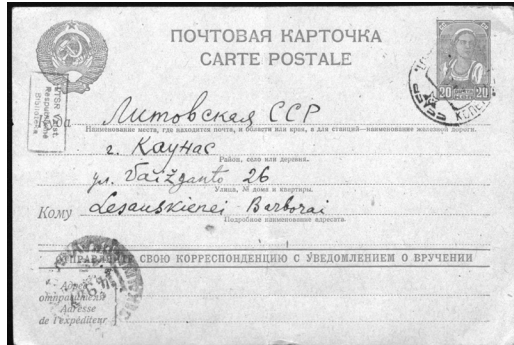 ПОЧТОВАЯ КАРТОЧКА
CARTE POSTALE
20 20
Куда Литовская ССР
Наименование места, где находится почта, и области или края, а для станций—наименование железной дороги.
г. Каунас
Район, село или деревня.
ул. Vaižganto 26
Улица, № дома и квартиры.
Кому Lesauskienei Barborai
Подробное наименование адресата.
ОТПРАВЛЯЙТЕ СВОЮ КОРРЕСПОНДЕНЦИЮ С УВЕДОМЛЕНИЕМ О ВРУЧЕНИИ
Адрес
отправителя
Adresse
de l'expéditeur